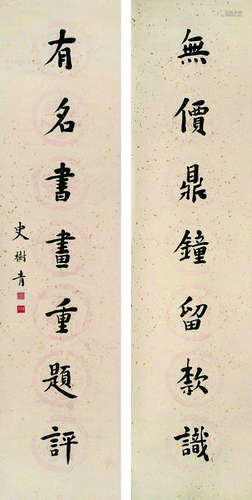 無價鼎鐘留款識
有名書畫重題評
史樹青